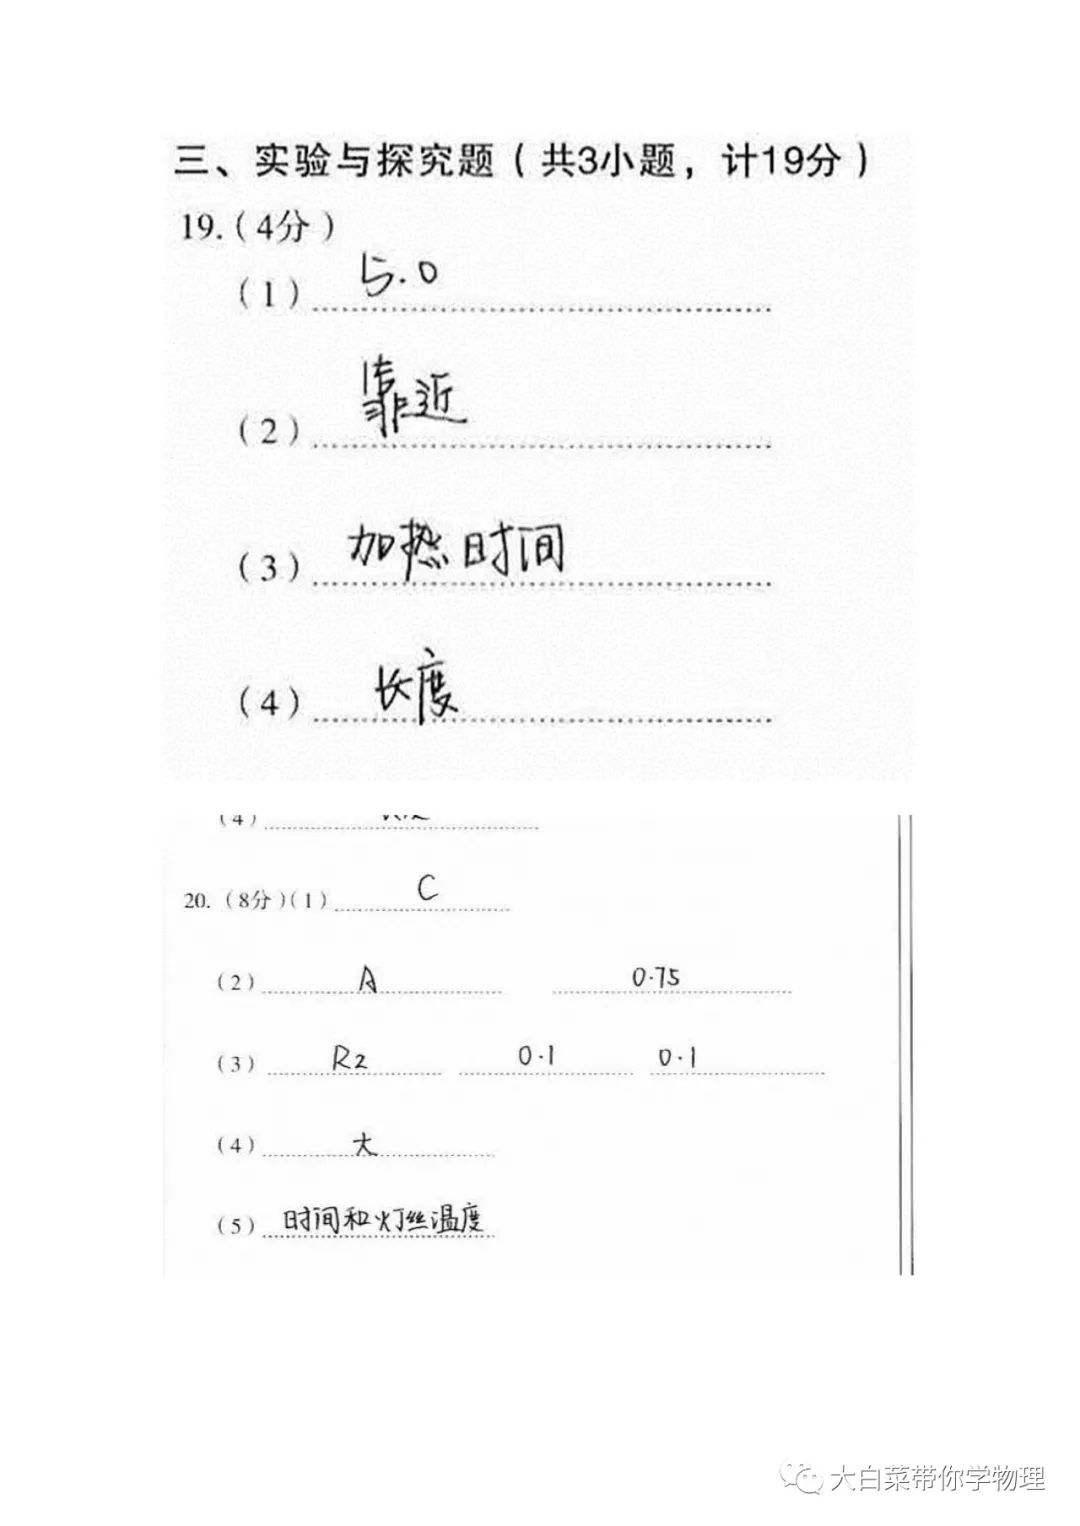 三、实验与探究题（共3小题，计19分）
19.（4分）
（1） 5.0
（2） 靠近
（3） 加热时间
（4） 长度
（4）
20.（8分）（1） C
（2） A 0.75
（3） R2 0.1 0.1
（4） 大
（5） 时间和灯丝温度
大白菜带你学物理